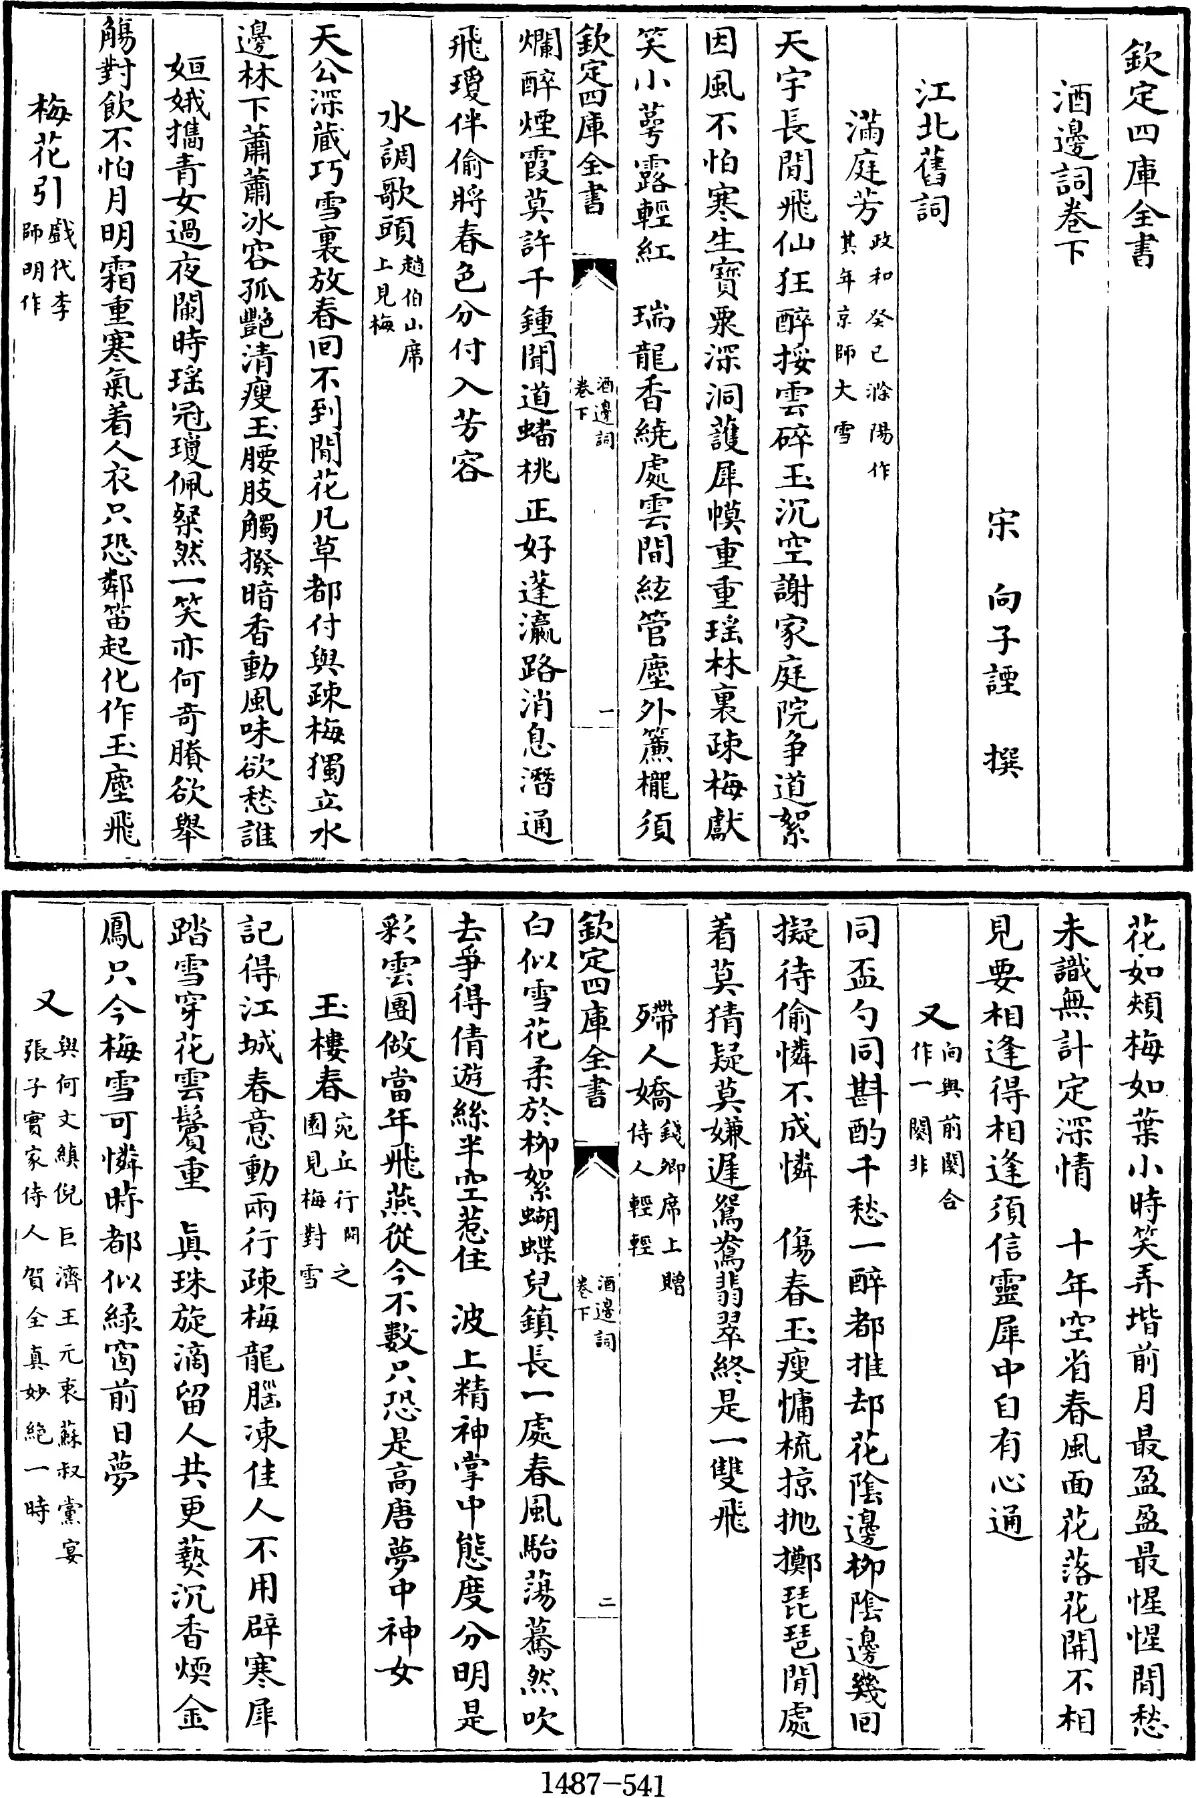 欽定四庫全書
酒邊詞卷下
宋 向子諲 撰
江北舊詞
滿庭芳政和癸巳滁陽作其年京師大雪
天宇長閒飛仙狂醉挼雲碎玉沉空謝家庭院争道絮
因風不怕寒生寶粟深洞護犀幙重重瑶林裏疎梅獻
笑小萼露輕紅 瑞龍香繞處雲間絃管塵外簾櫳須
欽定四庫全書 酒邊詞卷下 一
爛醉煙霞莫許千鍾聞道蟠桃正好蓬瀛路消息潛通
飛瓊伴偷將春色分付入芳容
水調歌頭趙伯山席上見梅
天公深藏巧雪裏放春回不到閒花凡草都付與疎梅獨立水
邊林下蕭蕭冰容孤艷清瘦玉腰肢觸撥暗香動風味欲愁誰
姮娥攜青女過夜闌時瑶冠瓊佩粲然一笑亦何奇賸欲舉
觴對飲不怕月明霜重寒氣着人衣只恐鄰笛起化作玉塵飛
梅花引戲代李師明作
花如頰梅如葉小時笑弄堦前月最盈盈最惺惺閒愁
未識無計定深情 十年空省春風面花落花開不相
見要相逢得相逢須信靈犀中自有心通
又向與前闋合作一闋非
同盃勺同斟酌千愁一醉都推却花陰邊柳陰邊幾回
擬待偷憐不成憐 傷春玉瘦慵梳掠抛擲琵琶閒處
着莫猜疑莫嫌遲鴛鴦翡翠終是一雙飛
殢人嬌錢卿席上贈侍人輕輕
白似雪花柔於柳絮蝴蝶兒鎮長一處春風駘蕩驀然吹
欽定四庫全書 酒邊詞卷下 二
去爭得倩遊絲半空惹住 波上精神掌中態度分明是
彩雲團做當年飛燕從今不數只恐是高唐夢中神女
玉樓春宛丘行閒之園見梅對雪
記得江城春意動兩行疎梅龍腦凍佳人不用辟寒犀
踏雪穿花雲鬢重 真珠旋滴留人共更爇沉香煗金
鳳只今梅雪可憐時都似緑窗前日夢
又與何文縝倪巨濟王元衷蘇叔黨宴張子實家侍人賀全真妙絶一時
1487—541